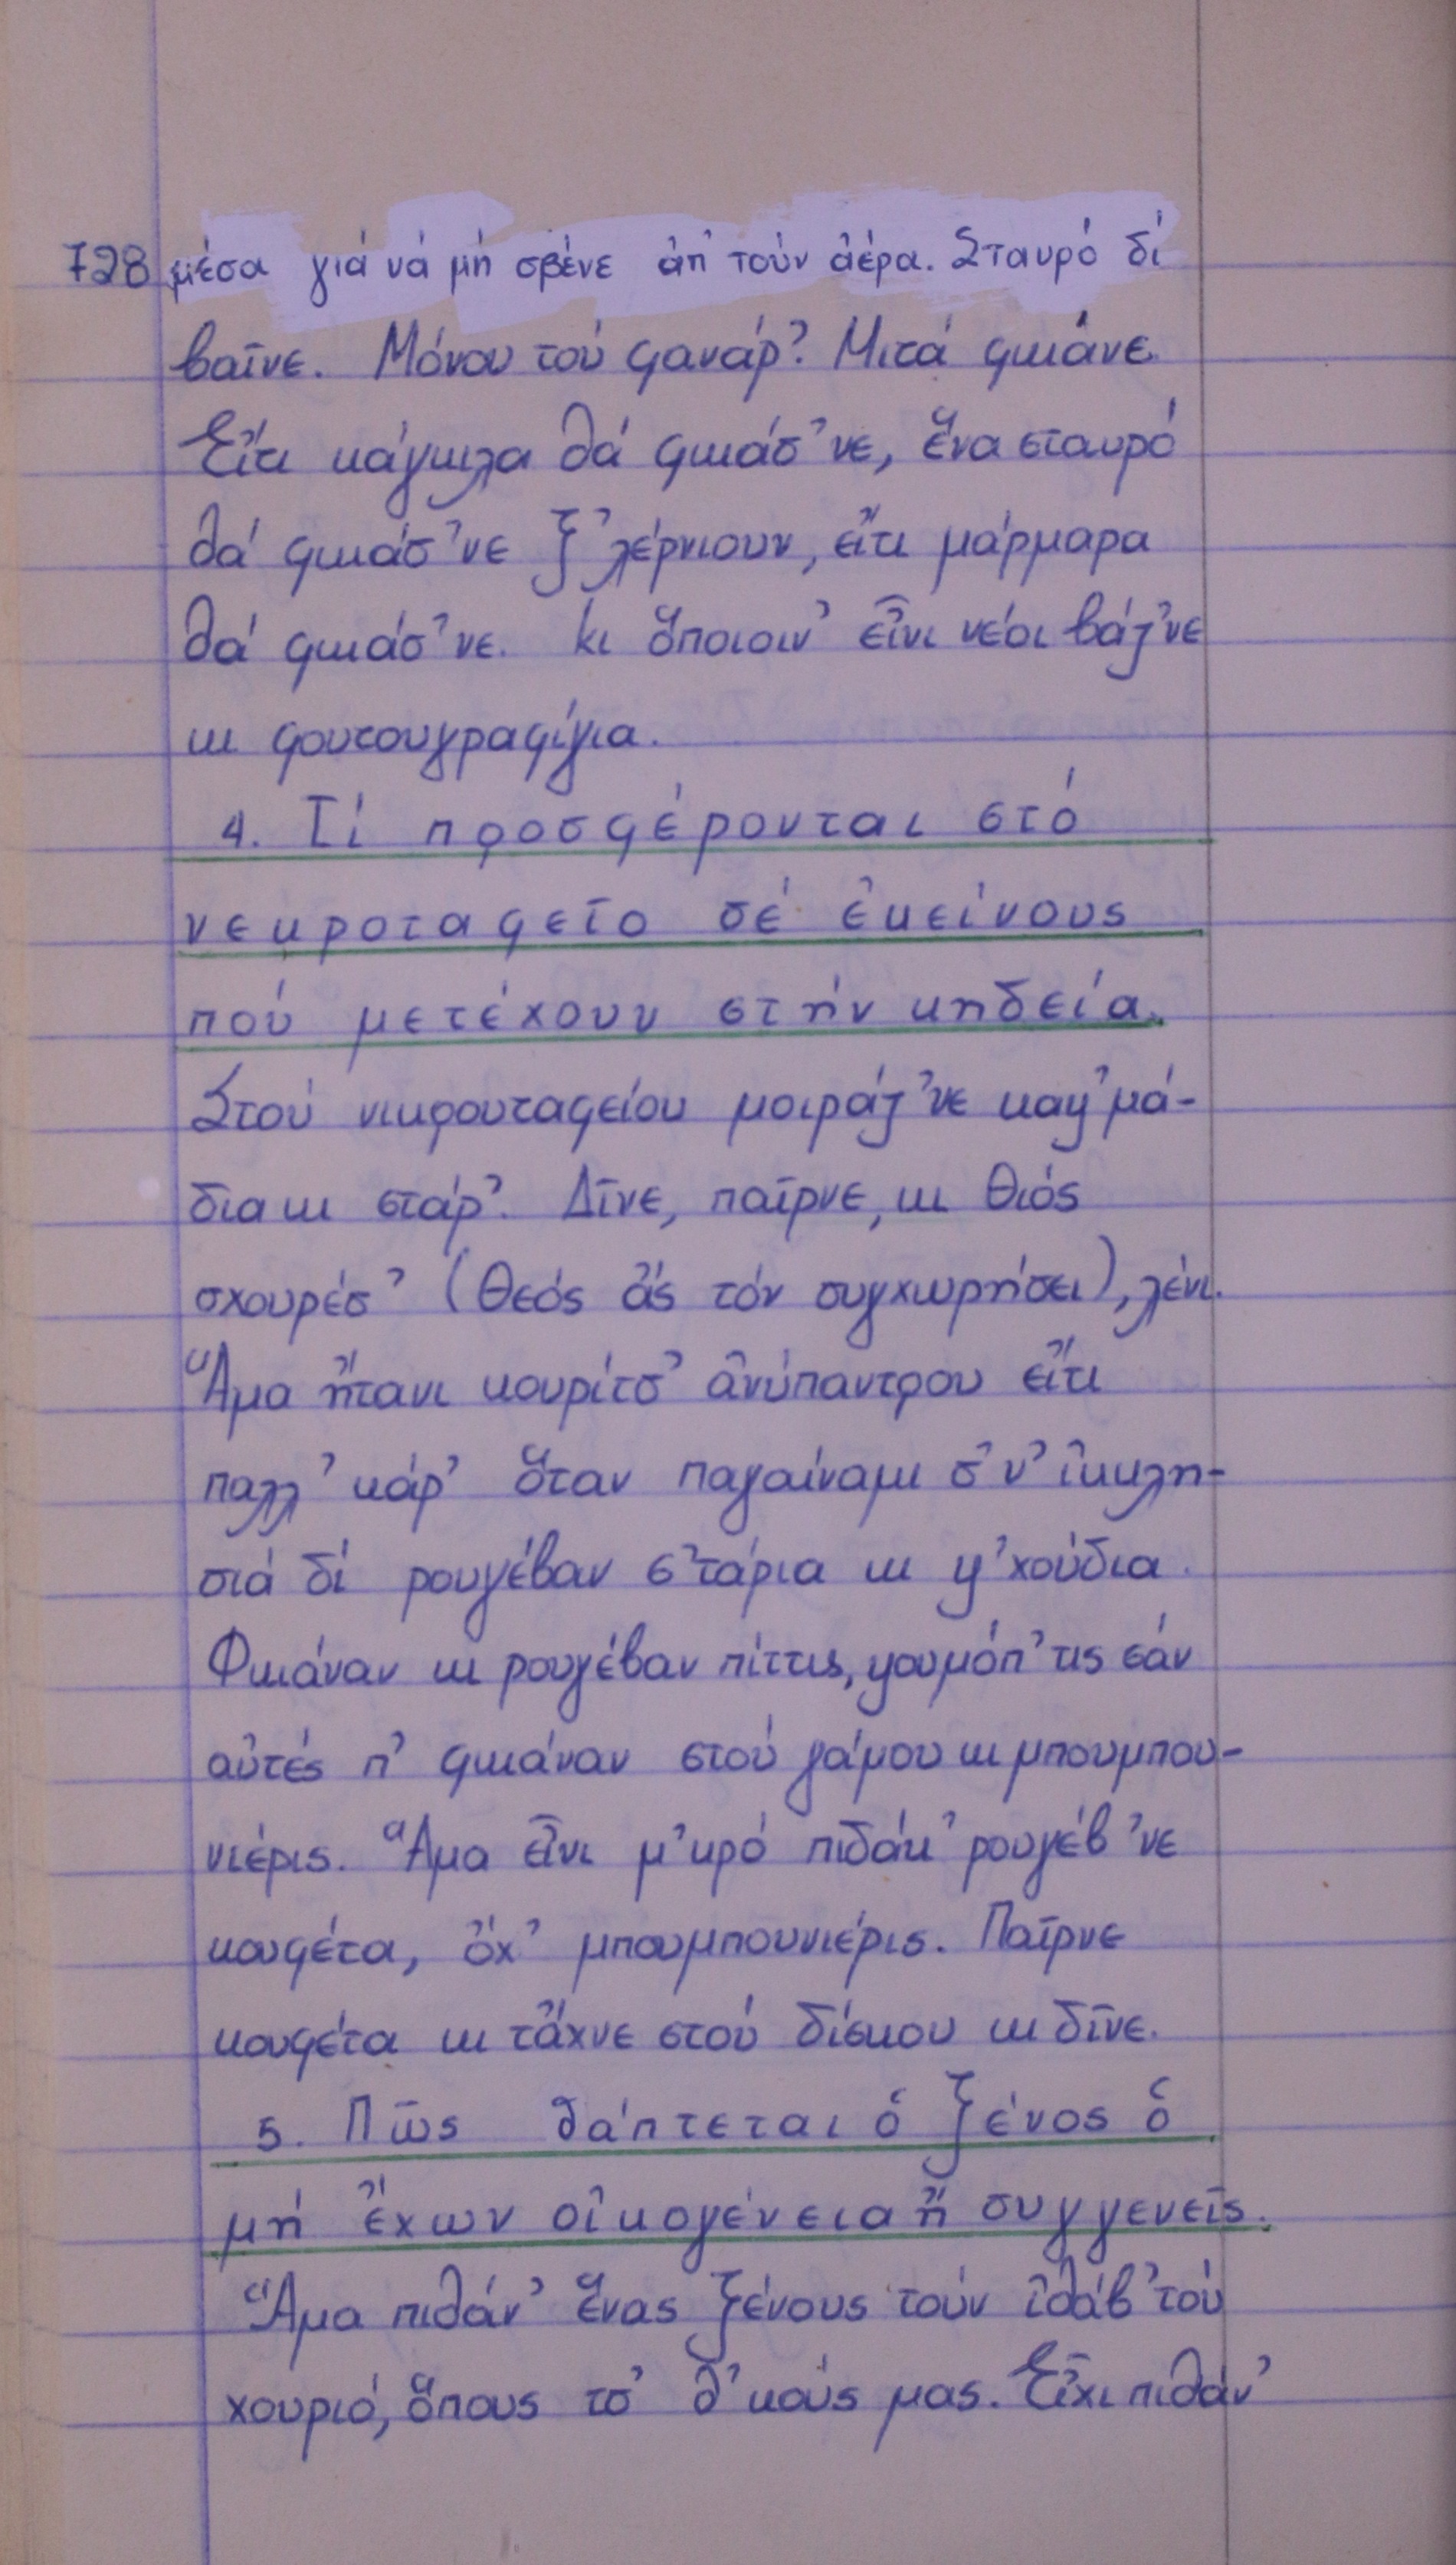 728 μέσα γιά νά μή σβένε ἀπ' τούν ἀέρα. Σταυρό δί
βαῖνε. Μόνου τού φανάρ'. Μιτά φκιάνε.
Εἴτι κάγκιλα θά φκιάσ'νε, ἕνα σταυρό
θά φκιάσ'νε ξ'λέρνιουν, εἴτι μάρμαρα
θά φκιάσ'νε. κι ὅποιοιν' εἶνι νέοι βάζ'νε
κι φουτουγραφίγια.
4. Τί προσφέρονται στό
νεκροταφεῖο σέ ἐκείνους
πού μετέχουν στήν κηδεία.
Στού νικρουταφείου μοιράζ'νε καψ'μά-
δια κι στάρ'. Δῖνε, παῖρνε, κι Θιός
σχουρέσ' (Θεός ἄς τόν συγχωρήσει), λένι.
Ἅμα ἤτανι κουρίτσ' ἀνύπαντρου εἴτι
παλλ'κάρ' ὅταν παγαίναμι σ'ν' ἰκκλη-
σιά δί ρουγέβαν σ'τάρια κι ψ'χούδια.
Φκιάναν κι ρουγέβαν πίττις, ψουμόπ'τις σάν
αὐτές π' φκιάναν στού γάμου κι μπουμπου-
νιέρις. Ἅμα εἶνι μ'κρό πιδάκ' ρουγέβ'νε
κουφέτα, ὄχ' μπουμπουνιέρις. Παῖρνε
κουφέτα κι τἄχνε στού δίσκου κι δῖνε.
5. Πῶς θάπτεται ὁ ξένος ὁ
μή ἔχων οἰκογένεια ἤ συγγενεῖς.
Ἅμα πιθάν' ἕνας ξένους τούν ἰθάβ' τού
χουριό, ὅπους τσ' δ'κούς μας. Εἶχι πιθάν'